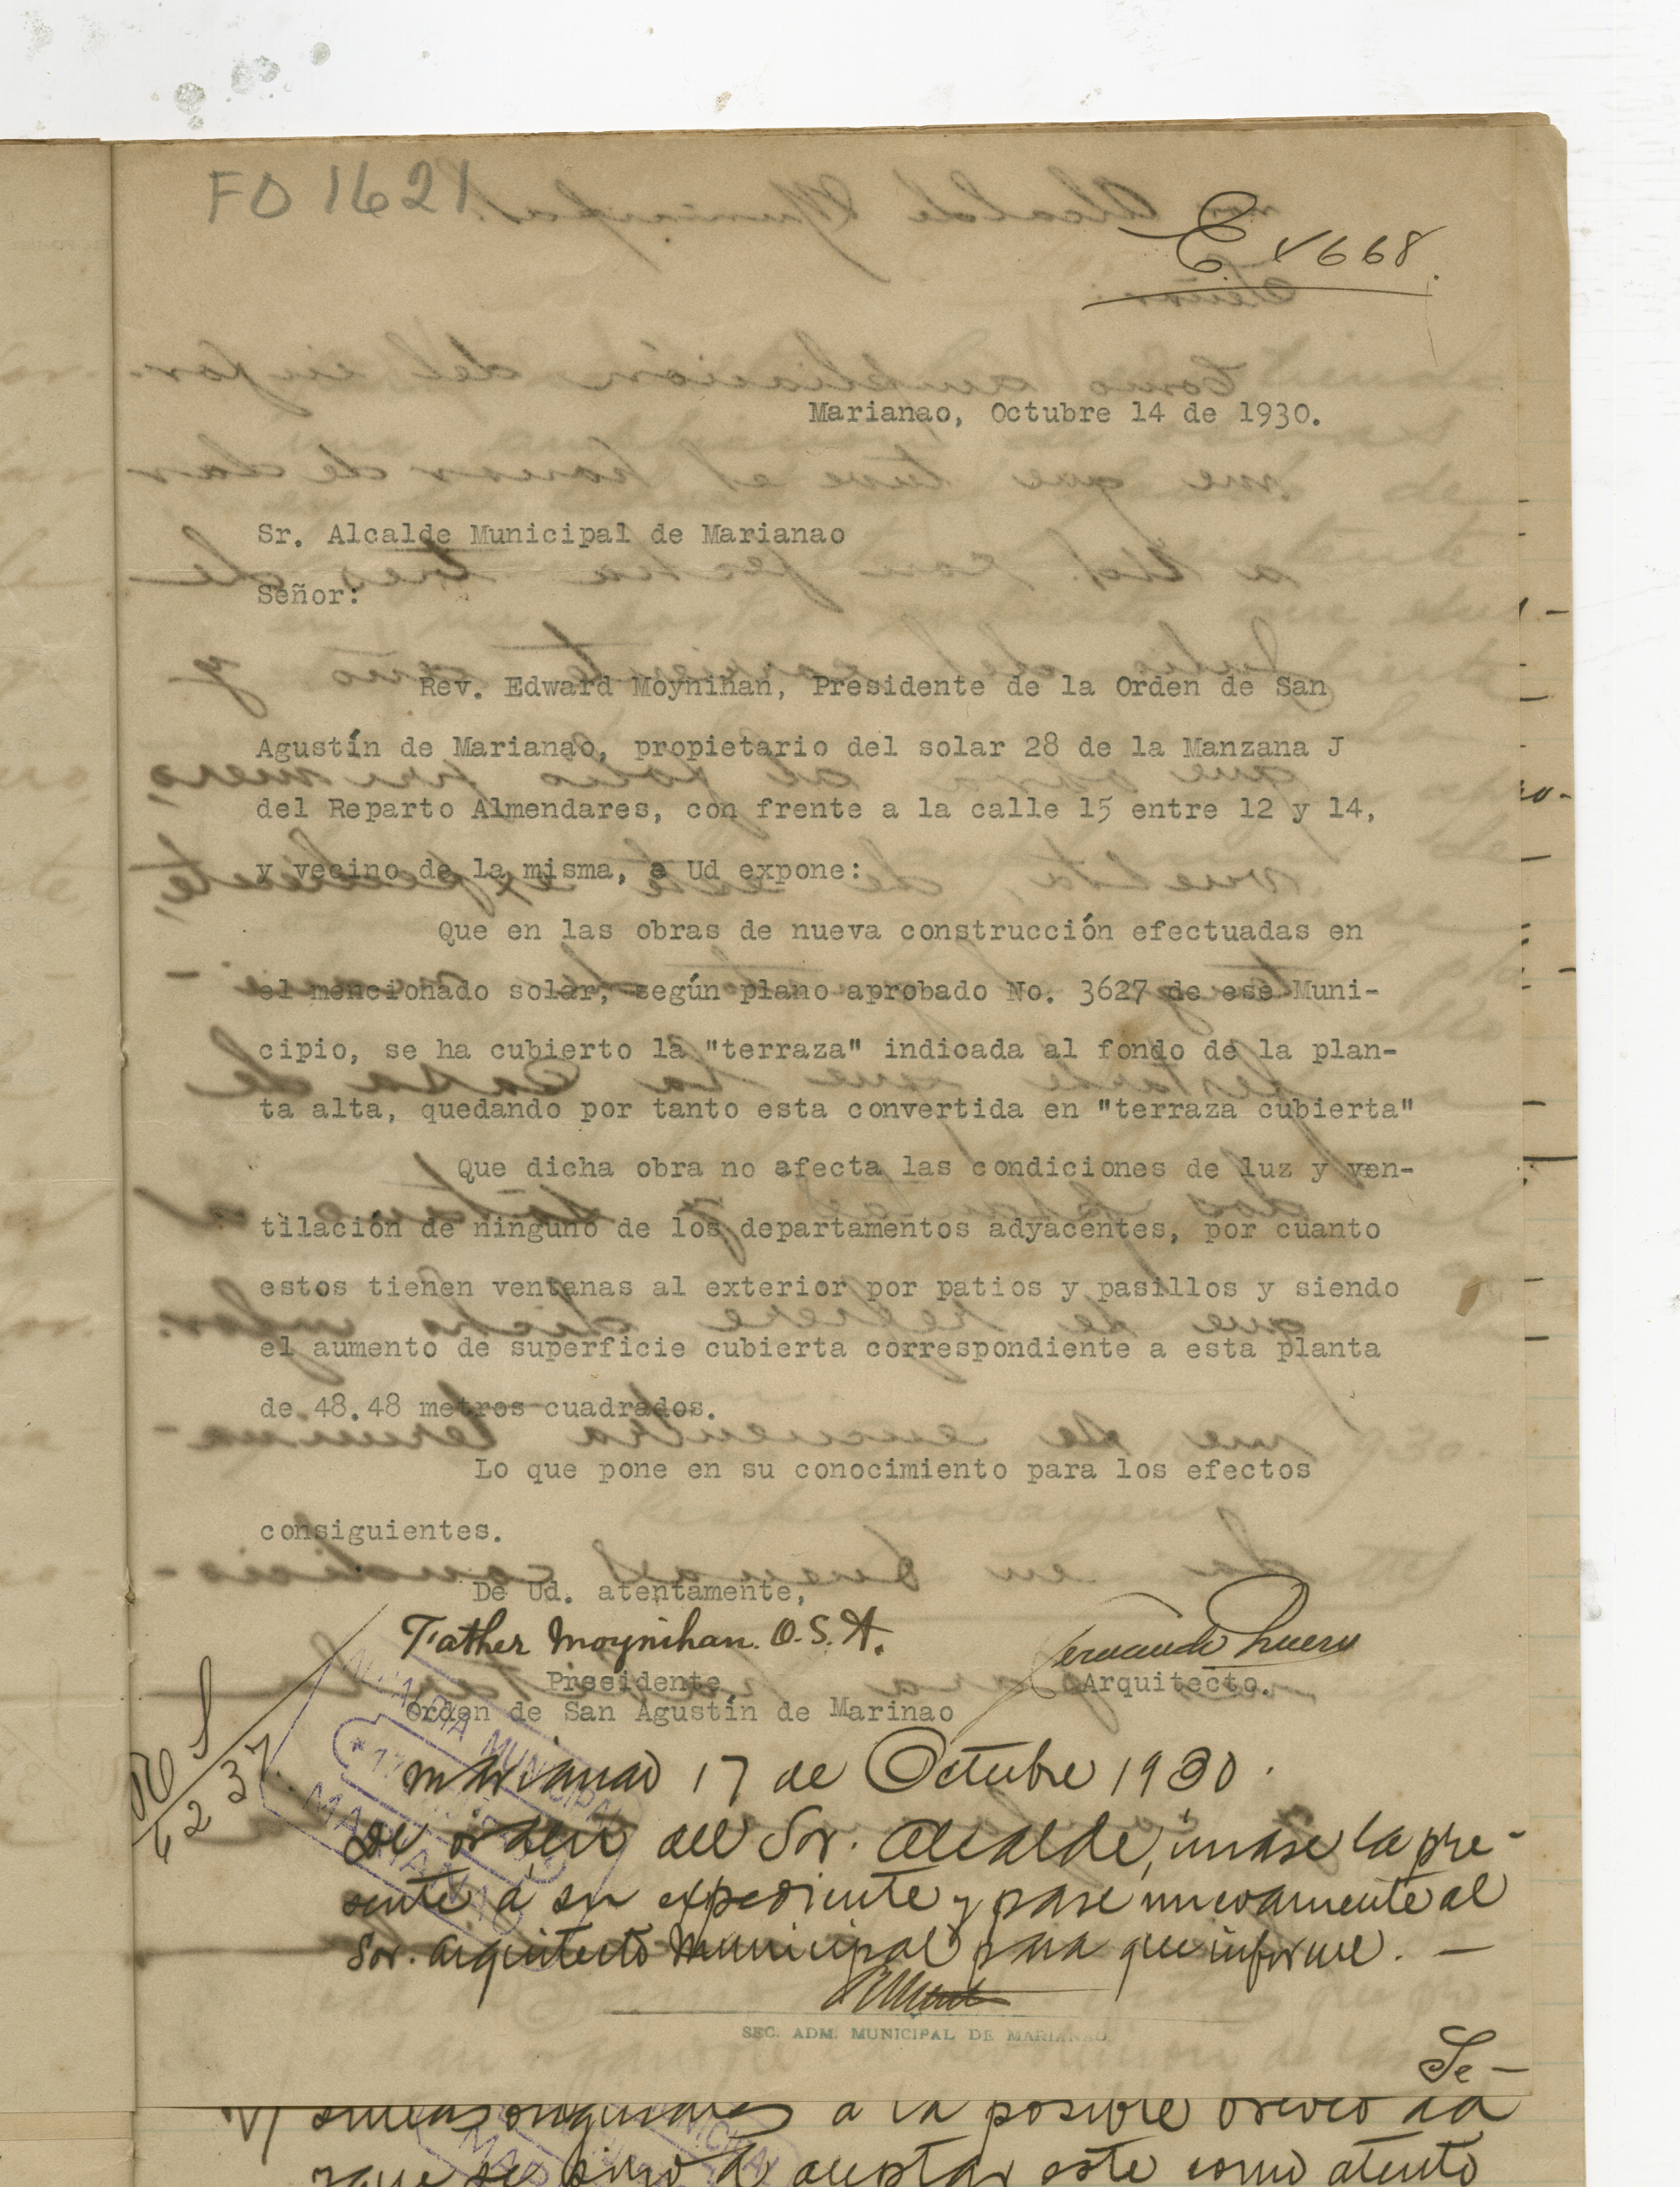 FO 1621
E 4668.
Marianao, Octubre 14 de 1930.
Sr. Alcalde Municipal de Marianao
Señor:
Rev. Edward Moynihan, Presidente de la Orden de San
Agustín de Marianao, propietario del solar 28 de la Manzana J
del Reparto Almendares, con frente a la calle 15 entre 12 y 14,
y vecino de la misma, a Ud expone:
Que en las obras de nueva construcción efectuadas en
el mencionado solar, según plano aprobado No. 3627 de ese Muni-
cipio, se ha cubierto la "terraza" indicada al fondo de la plan-
ta alta, quedando por tanto esta convertida en "terraza cubierta"
Que dicha obra no afecta las condiciones de luz y ven-
tilación de ninguno de los departamentos adyacentes, por cuanto
estos tienen ventanas al exterior por patios y pasillos y siendo
el aumento de superficie cubierta correspondiente a esta planta
de 48.48 metros cuadrados.
Lo que pone en su conocimiento para los efectos
consiguientes.
De Ud. atentamente,
Father Moynihan. O.S.A.
Presidente
Arquitecto.
Orden de San Agustín de Marinao
ALCALDIA MUNICIPAL
MARIANAO
Marianao 17 de Octubre 1930.
De orden del Sor. Alcalde, unase la pre-
sente á su expediente y pase nuevamente al
Sor. Arquitecto Municipal para que informe. —
SEC. ADM. MUNICIPAL DE MARIANAO
Se-
a la posible
aceptar este como atento